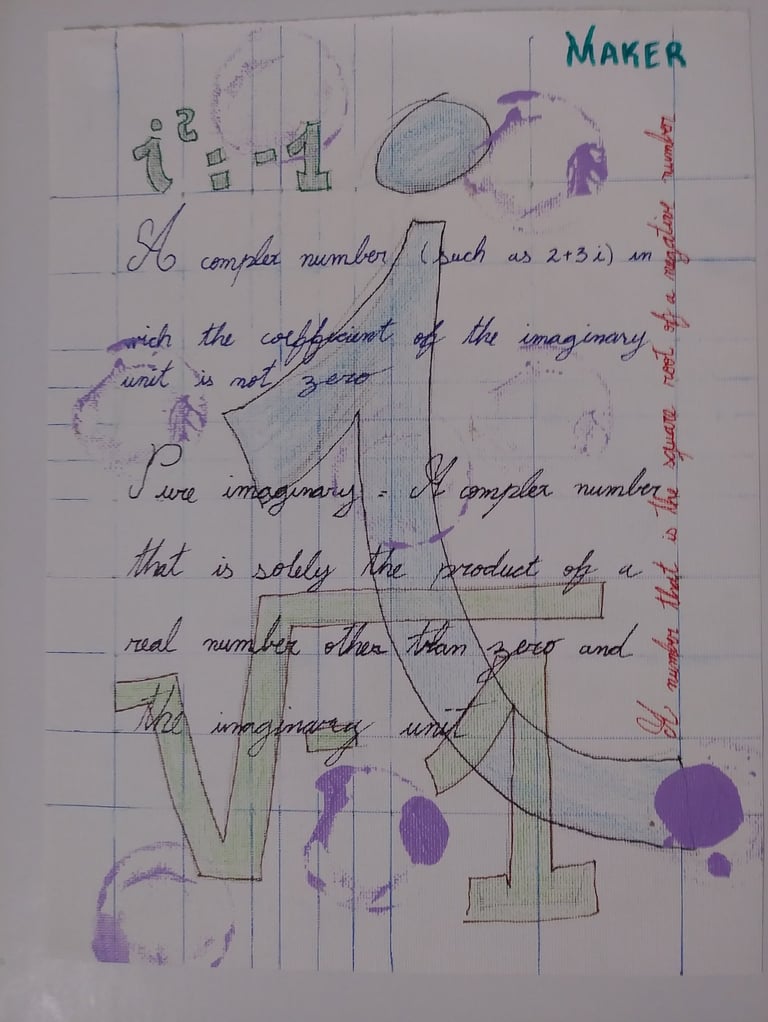 MAKER
i²:-1
A complex number (such as 2+3i) in
wich the coefficient of the imaginary
unit is not zero
Pure imaginary - A complex number
that is solely the product of a
real number other than zero and
the imaginary unit
√-1
i
A number that is the square root of a negative number